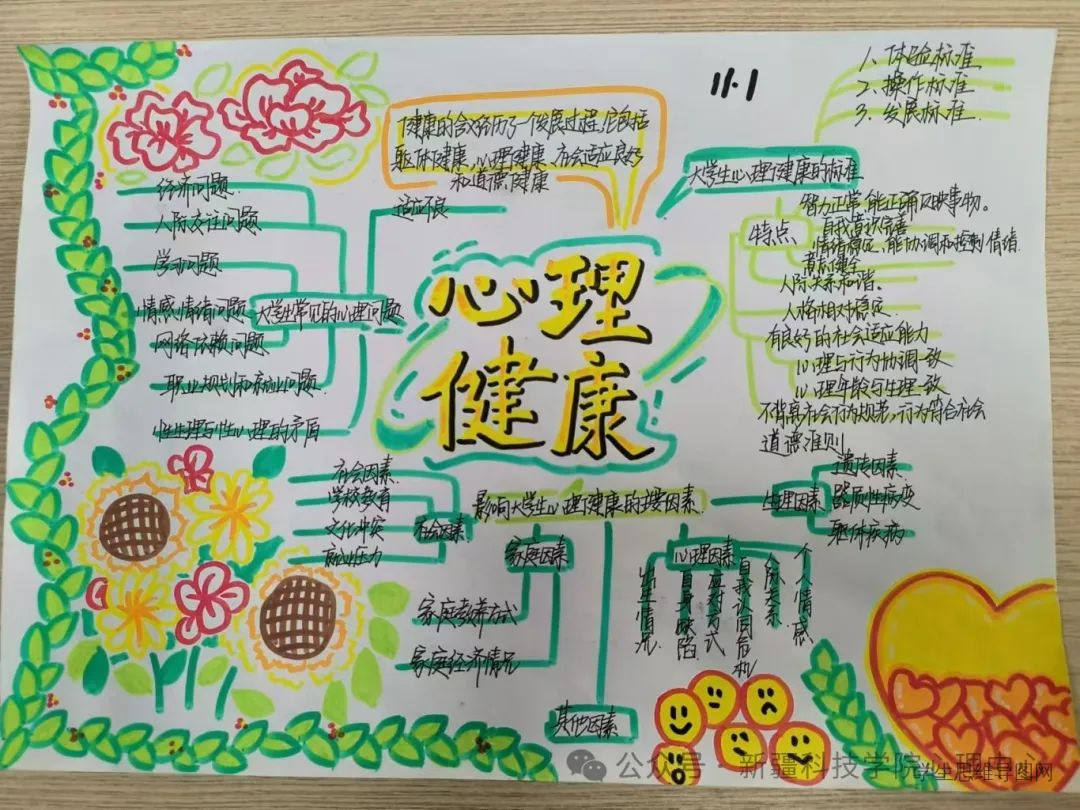 11.1
1、体验标准
2、操作标准
3、发展标准
健康的含义经历了一个发展过程,它包括
躯体健康、心理健康、社会适应良好
和道德健康
大学生心理健康的标准
特点
智力正常,能正确反映事物。
自我意识完善
情绪稳定,能协调和控制情绪
意志健全
人际关系和谐。
人格相对稳定
有良好的社会适应能力
心理与行为协调一致
心理年龄与生理一致
不背离社会行为规范,行为符合社会
道德准则
心理
健康
大学生常见的心理问题
适应不良
经济问题
人际交往问题
学习问题
情感情绪问题
网络依赖问题
职业规划和就业问题
性生理与性心理的矛盾
影响大学生心理健康的主要因素
社会因素
社会因素
学校教育
文化冲突
就业压力
家庭因素
家庭教养方式
家庭经济情况
心理因素
出生情况
自身缺陷
应对方式
自我认同危机
人际关系
个人情感
生理因素
遗传因素
器质性病变
躯体疾病
其他因素
公众号·新疆科技学院心理中心
学生思维导图网